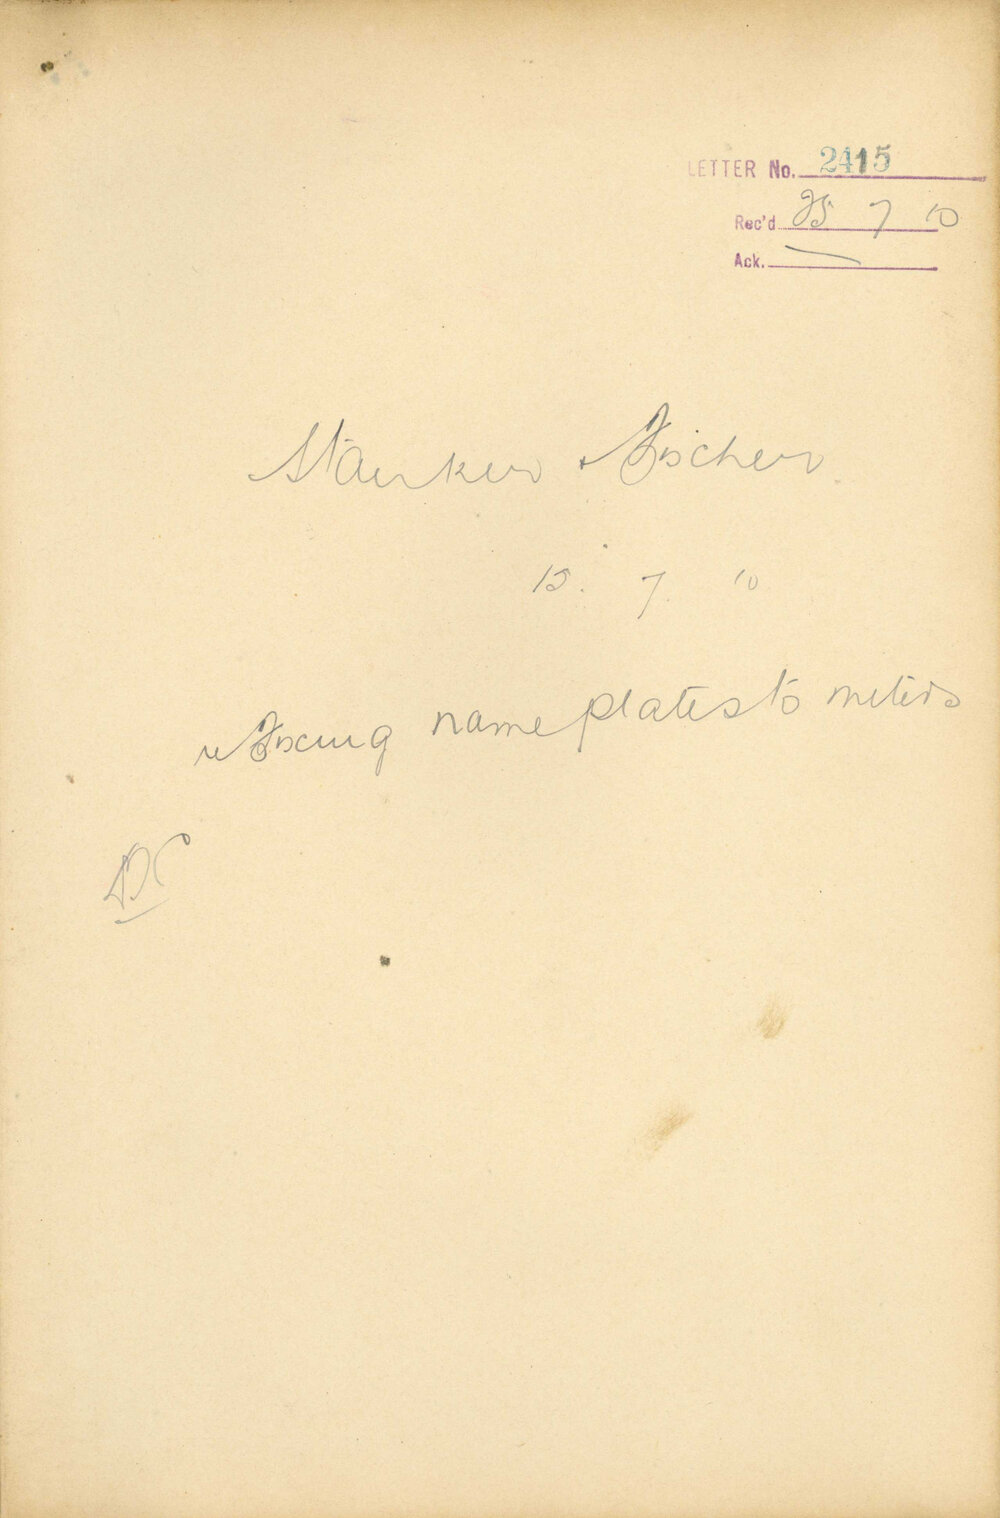 LETTER No. 2415
Rec'd 25 7 10
Ack. —
Staerker & Fischer
15. 7. 10
re Fixing name plates to meters